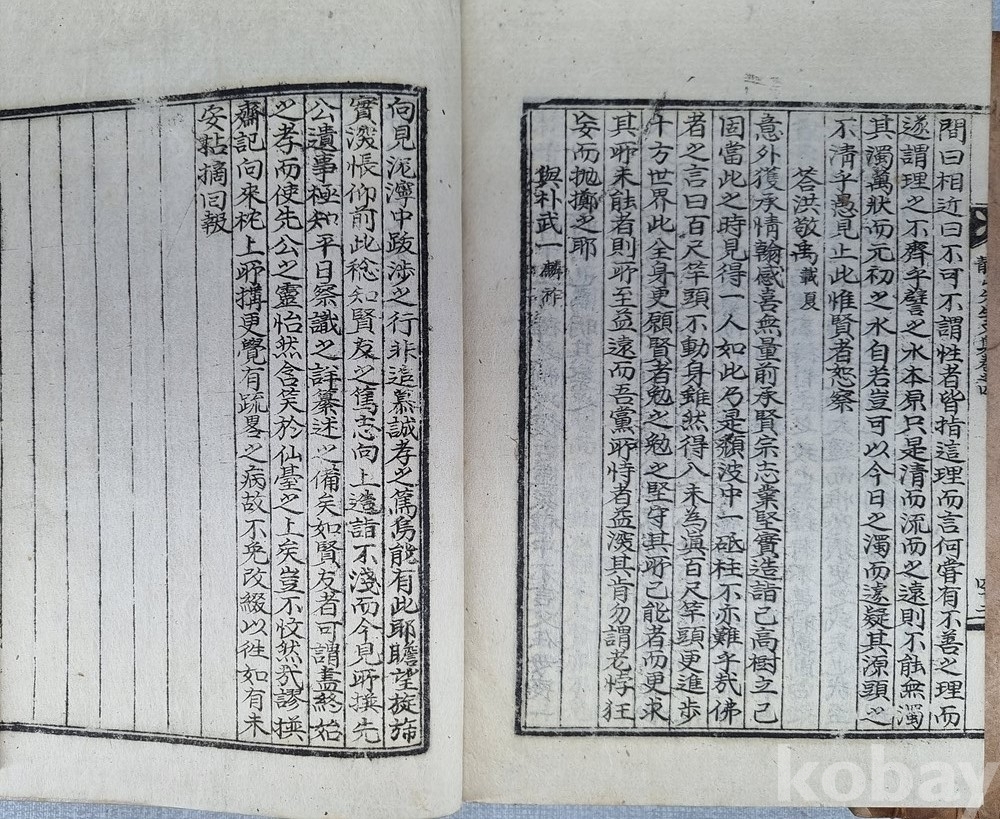 問曰相近曰不可不謂性者皆指這理而言何嘗有不善之理而
遂謂理之不齊乎譬之水本原只是清而流而之遠則不能無濁
其濁萬狀而元初之水自若豈可以今日之濁而遽疑其源頭之
不清乎愚見止此惟賢者恕察
答洪敬禹載夏
意外獲承情翰感喜無量前承賢宗志業堅實造詣已高樹立已
固當此之時見得一人如此乃是頹波中一砥柱不亦難乎哉佛
者之言曰百尺竿頭不動身雖然得入未為眞百尺竿頭更進步
十方世界此全身更願賢者勉之勉之堅守其所已能者而更求
其所未能者則所至益遠而吾黨所恃者益深其肯勿謂老悖狂
妄而抛擲之耶
與朴武一麟祚
向見泥濘中跋涉之行非追慕誠孝之篤焉能有此耶瞻望旋旆
實深悵仰前此稔知賢友之篤志向上造詣不淺而今見所撰先
公遺事極知平日察識之詳纂述之備矣如賢友者可謂盡終始
之孝而使先公之靈怡然含笑於仙臺之上矣豈不悅然哉謬撰
齋記向來枕上所搆更覺有疏畧之病故不免改綴以往如有未
安粘摘回報
kobay